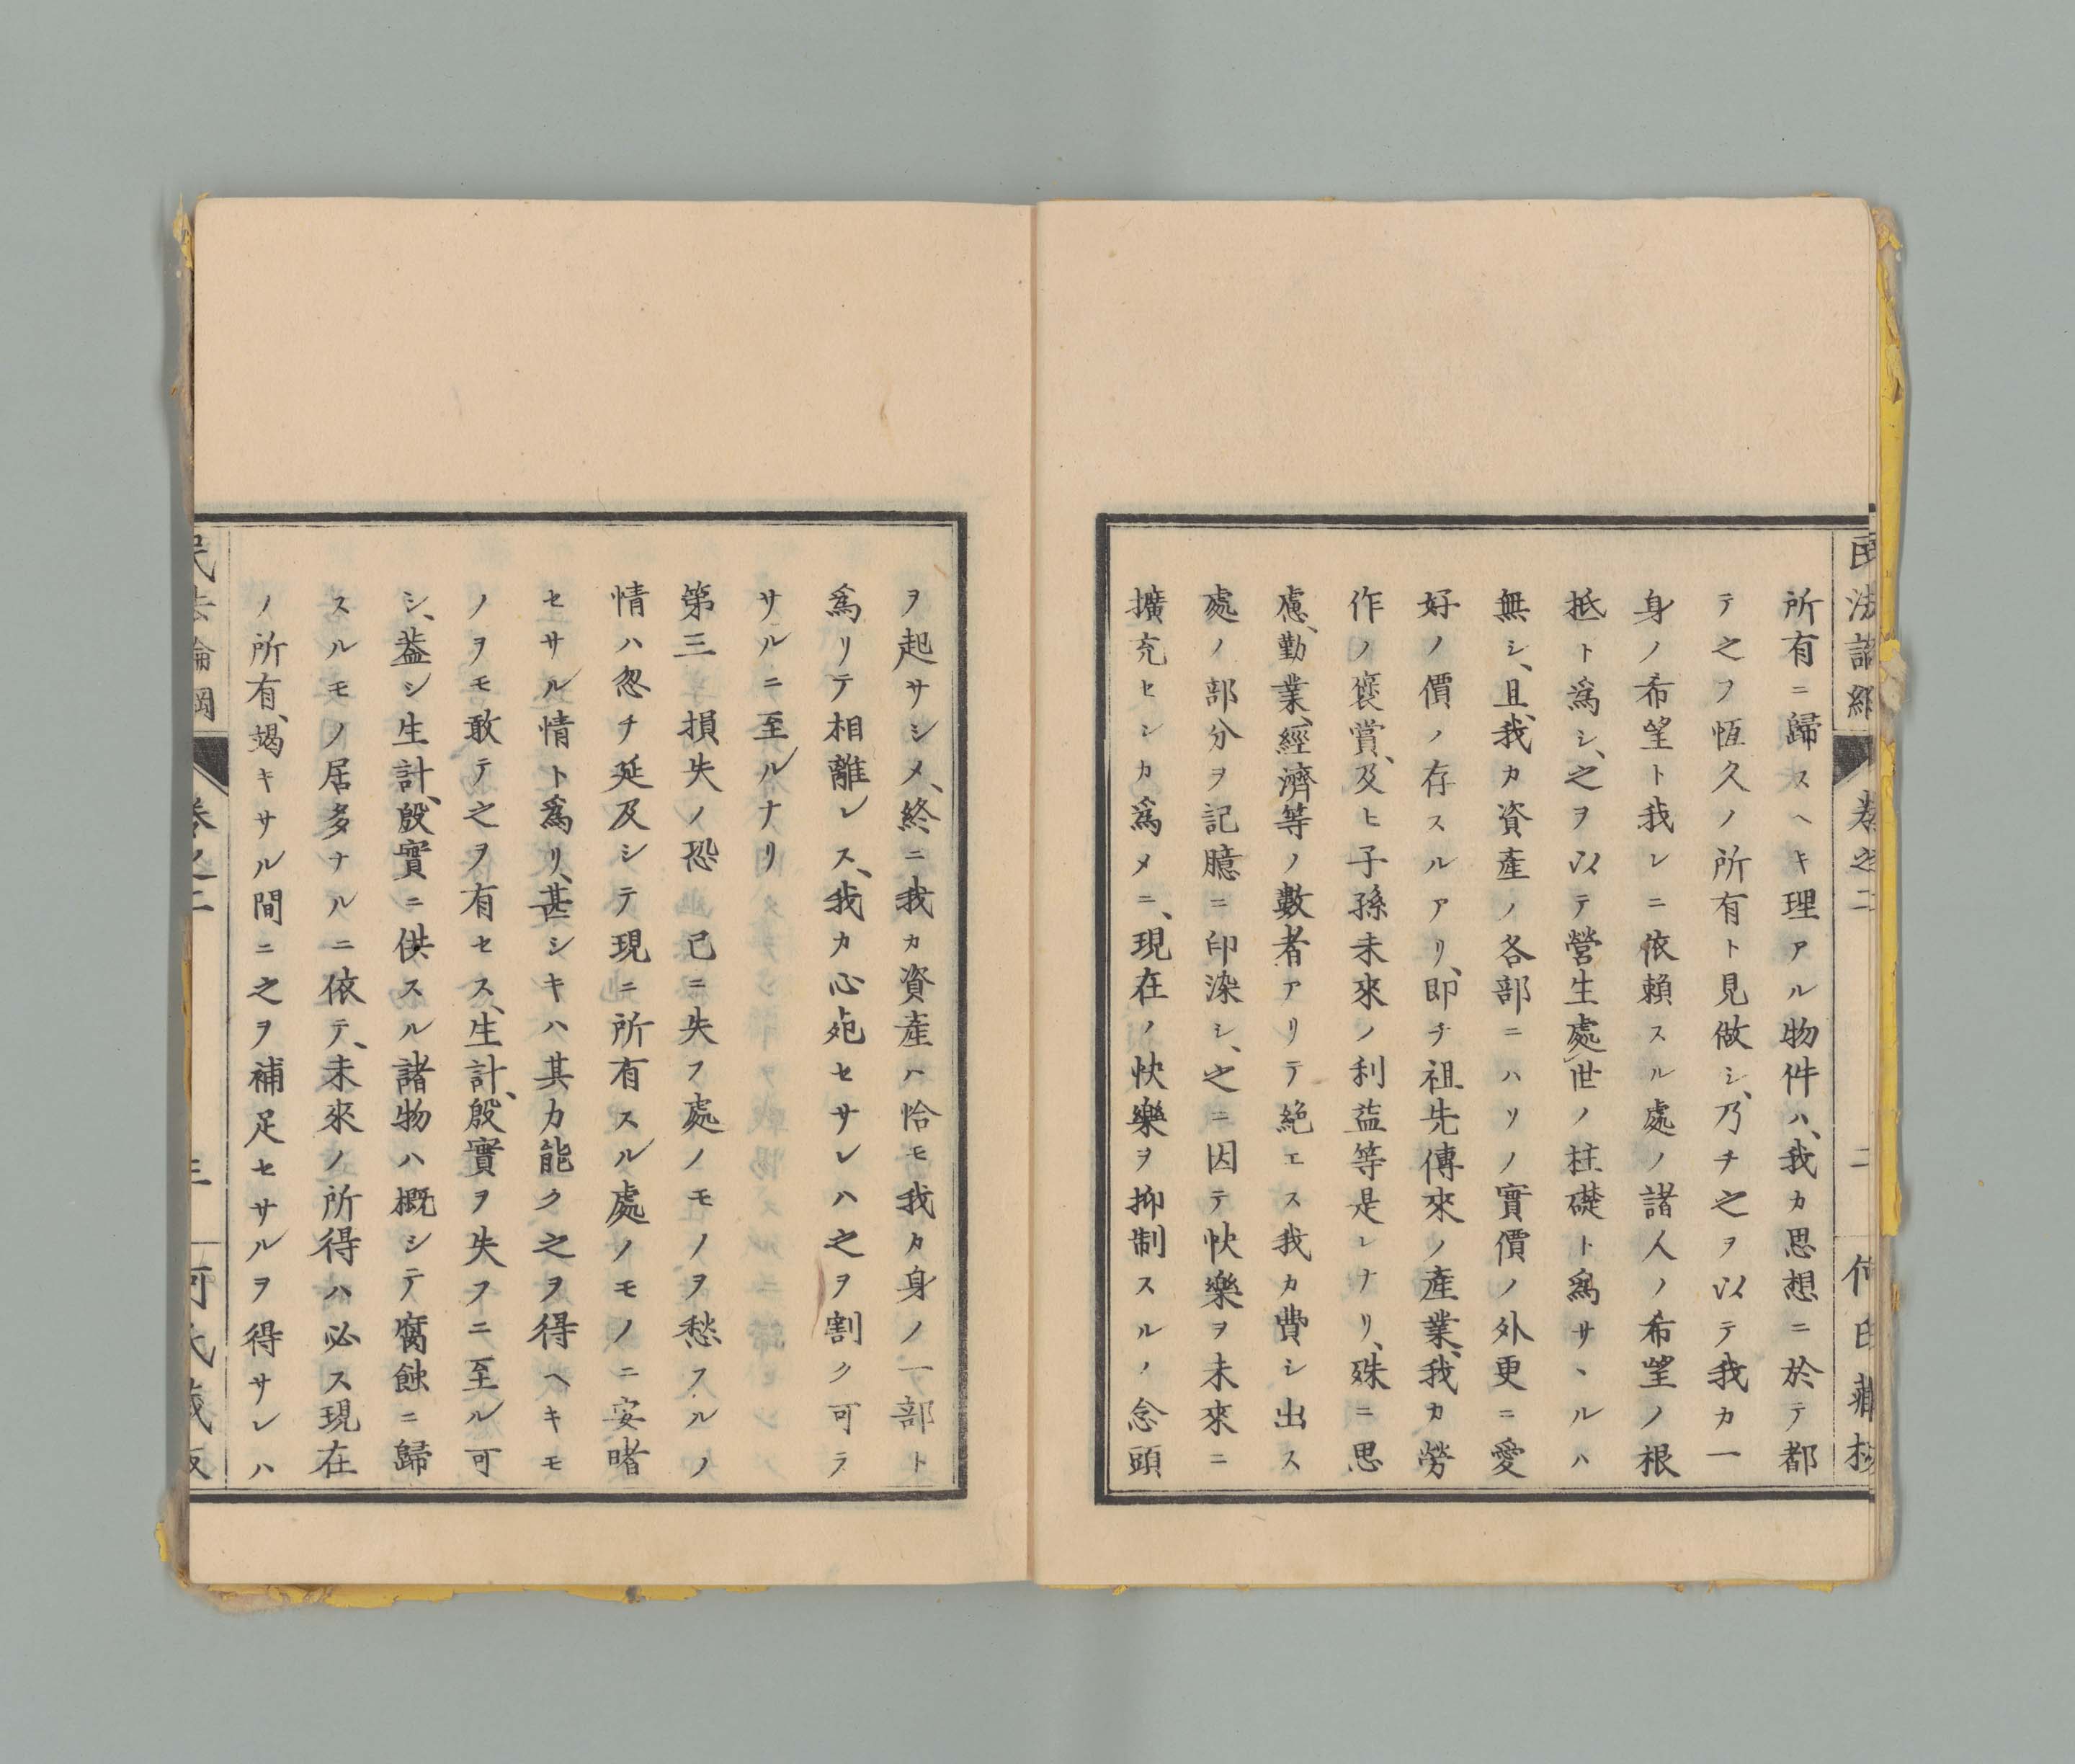 民法論綱 卷之二 二 何氏藏板
所有ニ歸スヘキ理アル物件ハ、我カ思想ニ於テ都
テ之ヲ恆久ノ所有ト見做シ、乃チ之ヲ以テ我カ一
身ノ希望ト我レニ依賴スル處ノ諸人ノ希望ノ根
抵ト爲シ、之ヲ以テ營生處世ノ柱礎ト爲サヽルハ
無シ、且我カ資產ノ各部ニハリノ實價ノ外更ニ愛
好ノ價ノ存スルアリ、即チ祖先傳來ノ產業、我カ勞
作ノ褒賞、及ヒ子孫未來ノ利益等是レナリ、殊ニ思
慮、勤業、經濟等ノ數者アリテ絶エス我カ費シ出ス
處ノ部分ヲ記臆ニ印染シ、之ニ因テ快樂ヲ未來ニ
擴充セシカ爲メニ、現在ノ快樂ヲ抑制スルノ念頭
ヲ起サシメ、終ニ我カ資產ハ恰モ我カ身ノ一部ト
爲リテ相離レス、我カ心死セサレハ之ヲ割ク可ラ
サルニ至ルナリ
第三 損失ノ恐 已ニ失フ處ノモノヲ愁フルノ
情ハ忽チ延及シテ現ニ所有スル處ノモノニ安睹
セサル情ト爲リ、甚シキハ其力能ク之ヲ得ヘキモ
ノヲモ敢テ之ヲ有セス、生計、殷實ヲ失フニ至ル可
シ、蓋シ生計、殷實ニ供スル諸物ハ概シテ腐蝕ニ歸
スルモノ居多ナルニ依テ、未來ノ所得ハ必ス現在
ノ所有、竭キサル間ニ之ヲ補足セサルヲ得サレハ
民法論綱 卷之二 三 何氏藏板